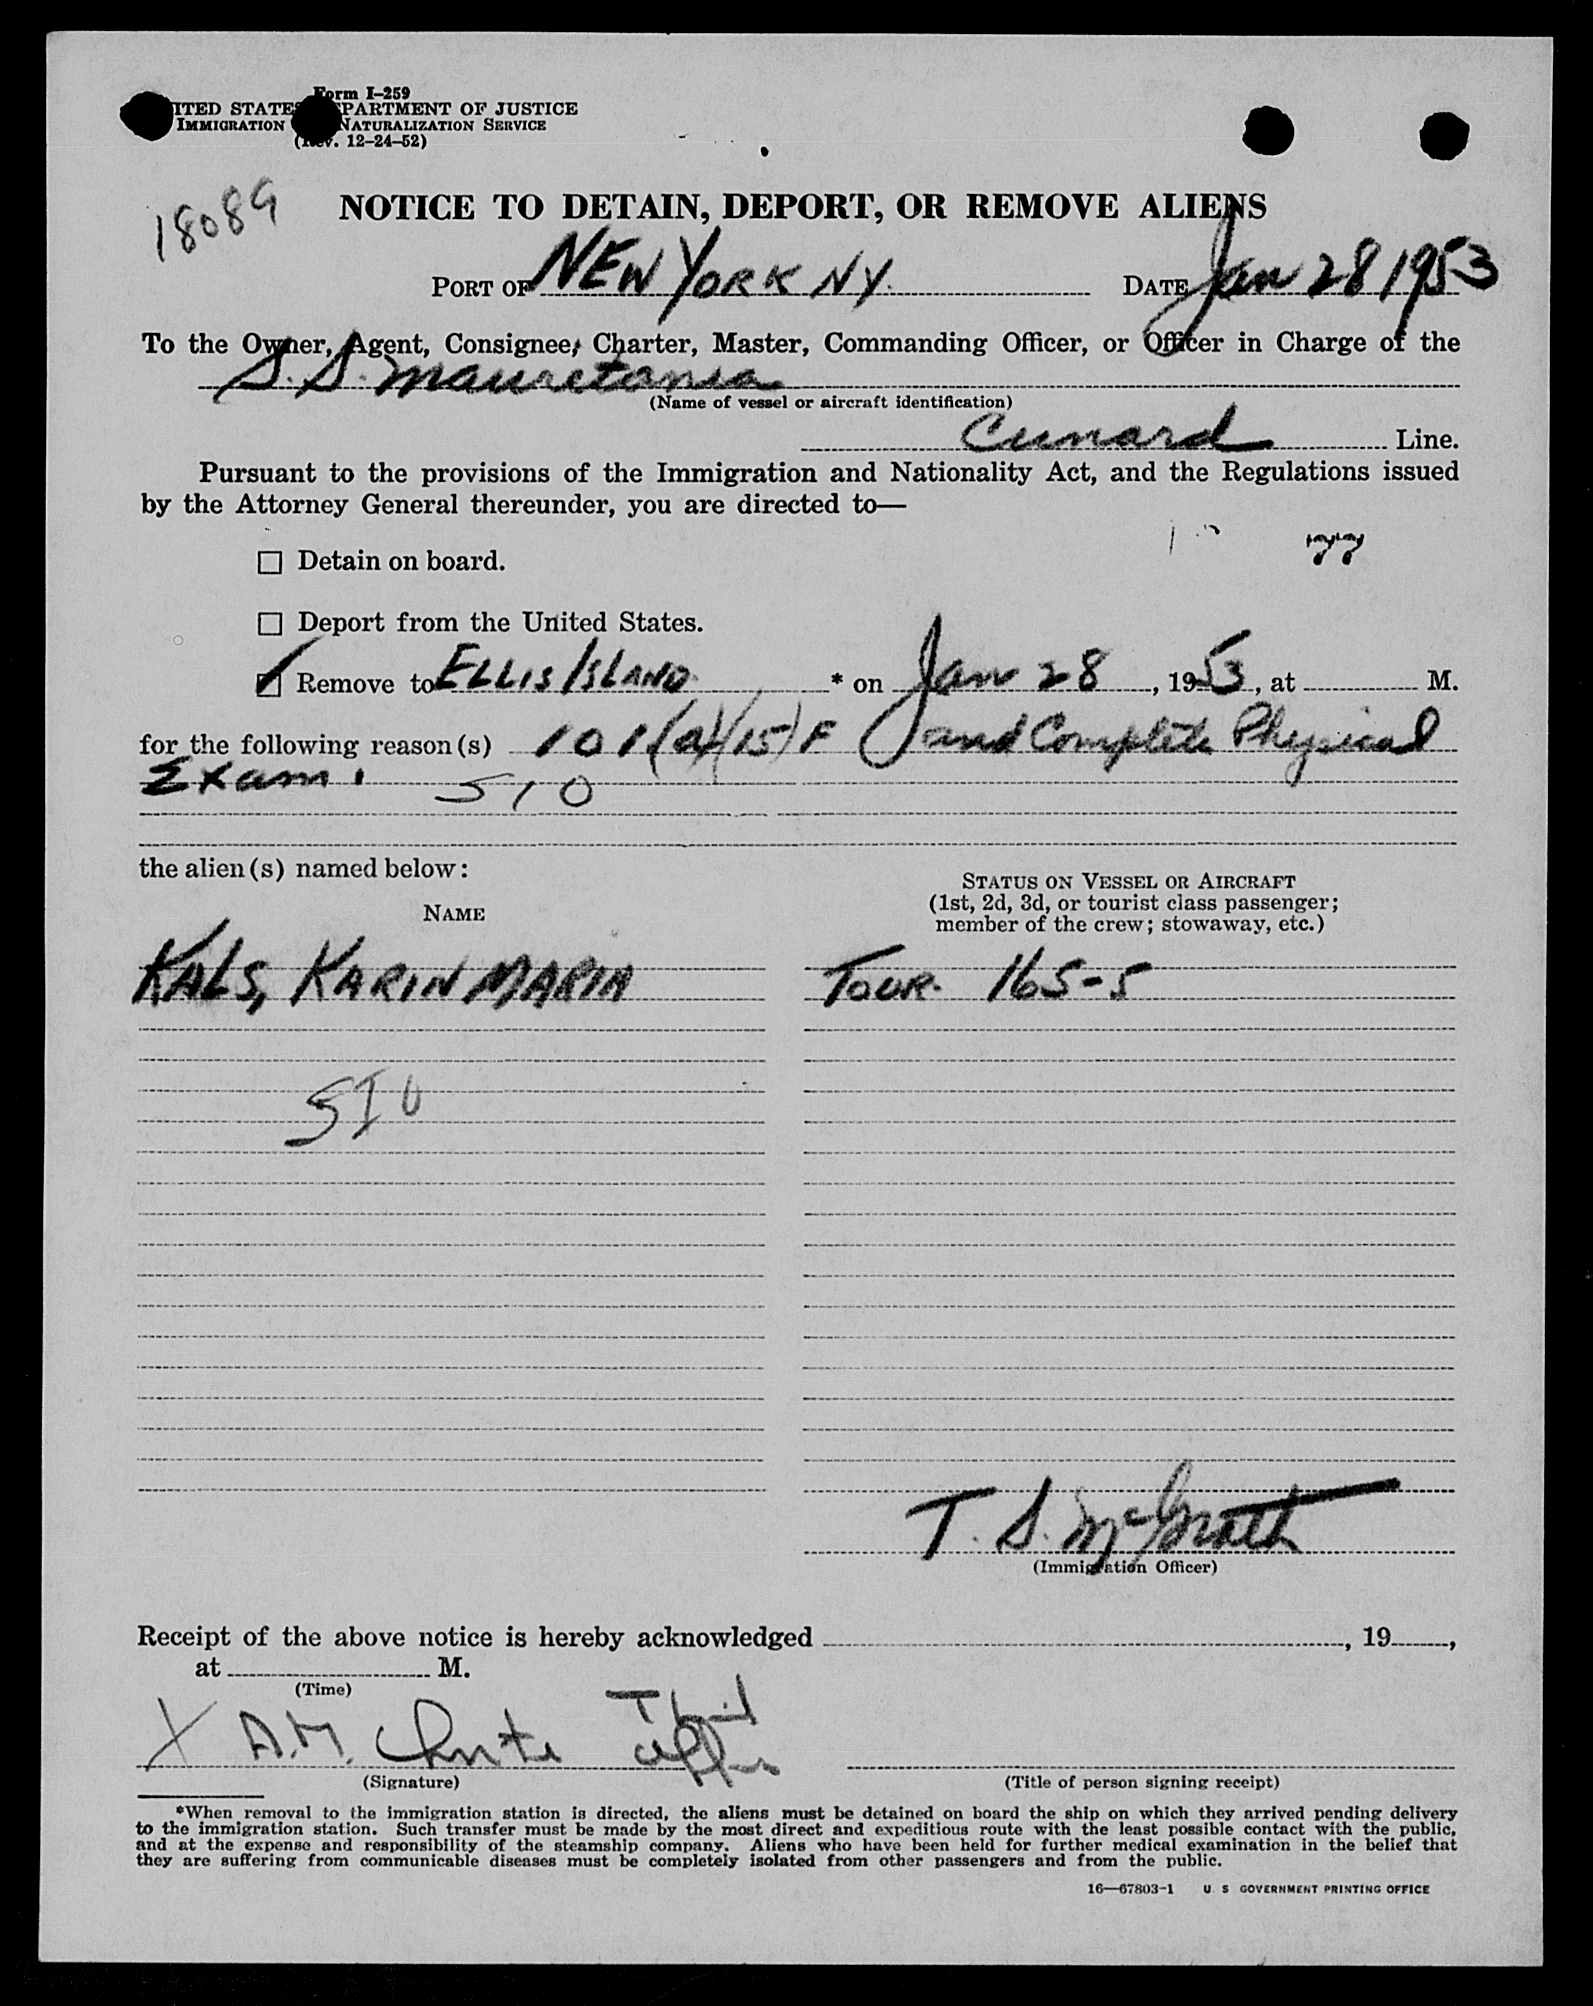 Form I-259
ITED STATES PARTMENT OF JUSTICE
IMMIGRATION NATURALIZATION SERVICE
(Rev. 12-24-52)
18089
NOTICE TO DETAIN, DEPORT, OR REMOVE ALIENS
PORT OF NEW YORK NY. DATE Jan 28 1953
To the Owner, Agent, Consignee, Charter, Master, Commanding Officer, or Officer in Charge of the
S.S. Mauretania
(Name of vessel or aircraft identification)
Cunard Line.
Pursuant to the provisions of the Immigration and Nationality Act, and the Regulations issued
by the Attorney General thereunder, you are directed to—
77
☐ Detain on board.
☐ Deport from the United States.
☑ Remove to ELLIS ISLAND * on Jan 28, 1953, at M.
for the following reason(s) 101(a)(15)F and Complete Physical
Exam. SIO
the alien(s) named below:
NAME
STATUS ON VESSEL OR AIRCRAFT
(1st, 2d, 3d, or tourist class passenger;
member of the crew; stowaway, etc.)
KALS, KARIN MARIA TOUR. 165-5
SIO
T. S. McGrath
(Immigration Officer)
Receipt of the above notice is hereby acknowledged , 19 ,
at M.
(Time)
X A.M.
(Signature)
(Title of person signing receipt)
*When removal to the immigration station is directed, the aliens must be detained on board the ship on which they arrived pending delivery
to the immigration station. Such transfer must be made by the most direct and expeditious route with the least possible contact with the public,
and at the expense and responsibility of the steamship company. Aliens who have been held for further medical examination in the belief that
they are suffering from communicable diseases must be completely isolated from other passengers and from the public.
16—67803-1 U S GOVERNMENT PRINTING OFFICE